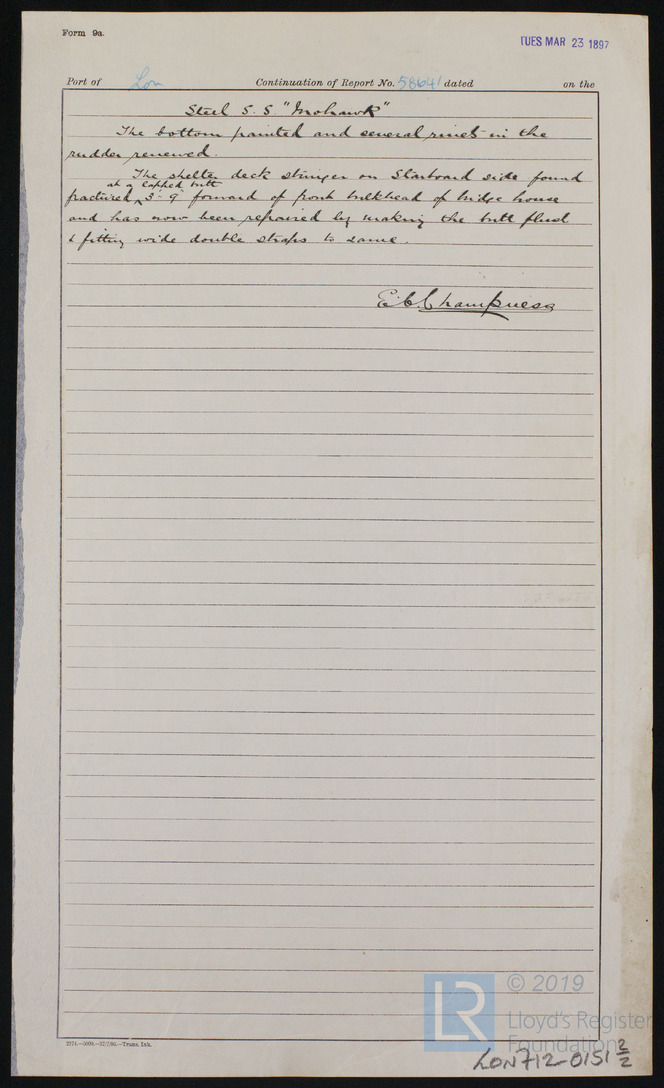 Form 9a.
TUES MAR 23 1897
Port of Lon Continuation of Report No. 58641 dated on the
Steel S.S. "Mohawk"
The bottom painted and several rivets in the
rudder renewed.
The shelter deck stringer on Starboard side found
at a lapped butt
fractured 3'-9" forward of front bulkhead of bridge house
and has now been repaired by making the butt flush
& fitting wide double straps to same.
E.C. Champness
© 2019
LR
Lloyd's Register
Foundation
LON712-0151 2/2